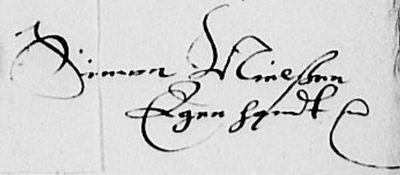 Simon Nielssen
Egen handt